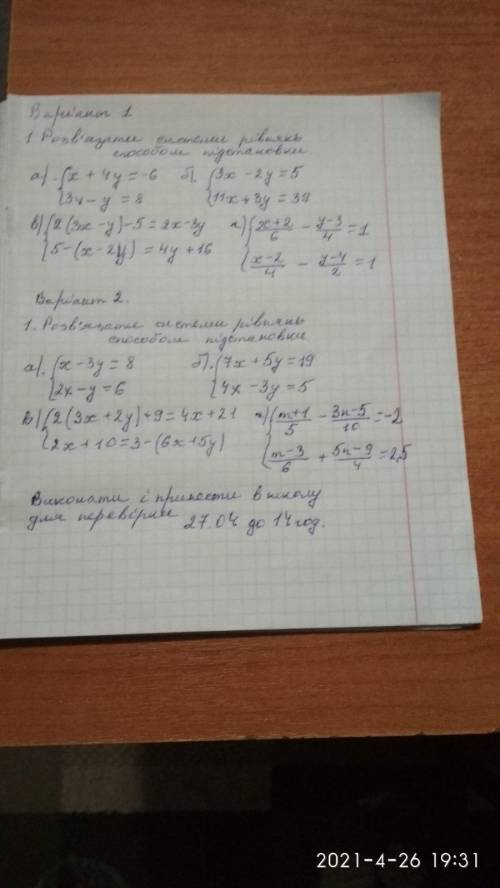 Варіант 1
1 Розв'язати системи рівнянь
способом підстановки.
а) {x + 4y = -6 б) {3x - 2y = 5
{3x - y = 8 {11x + 3y = 39
в) {2(3x - y) - 5 = 2x - 3y г) {(x+2)/6 - (y-3)/4 = 1
{5 - (x - 2y) = 4y + 16 {(x-2)/4 - (y-4)/2 = 1
Варіант 2.
1. Розв'язати системи рівнянь
способом підстановки
а) {x - 3y = 8 б) {7x + 5y = 19
{2x - y = 6 {4x - 3y = 5
в) {2(3x + 2y) + 9 = 4x + 21 г) {(m+1)/5 - (3n-5)/10 = -2
{2x + 10 = 3 - (6x + 5y) {(m-3)/6 + (5n-9)/4 = 2,5
Виконати і принести в школу
для перевірки 27.04 до 14 год.
2021-4-26 19:31